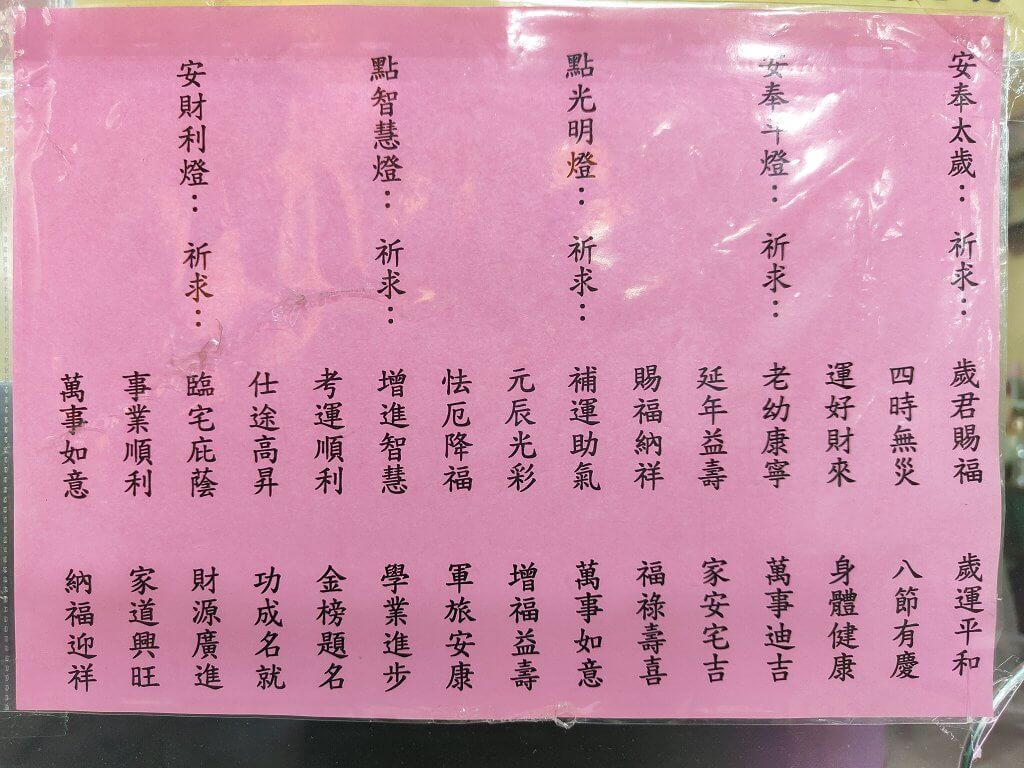 安奉太歲： 祈求： 歲君賜福 歲運平和
四時無災 八節有慶
運好財來 身體健康
安奉斗燈： 祈求： 老幼康寧 萬事迪吉
延年益壽 家安宅吉
賜福納祥 福祿壽喜
點光明燈： 祈求： 補運助氣 萬事如意
元辰光彩 增福益壽
怯厄降福 軍旅安康
點智慧燈： 祈求： 增進智慧 學業進步
考運順利 金榜題名
仕途高昇 功成名就
安財利燈： 祈求： 臨宅庇蔭 財源廣進
事業順利 家道興旺
萬事如意 納福迎祥